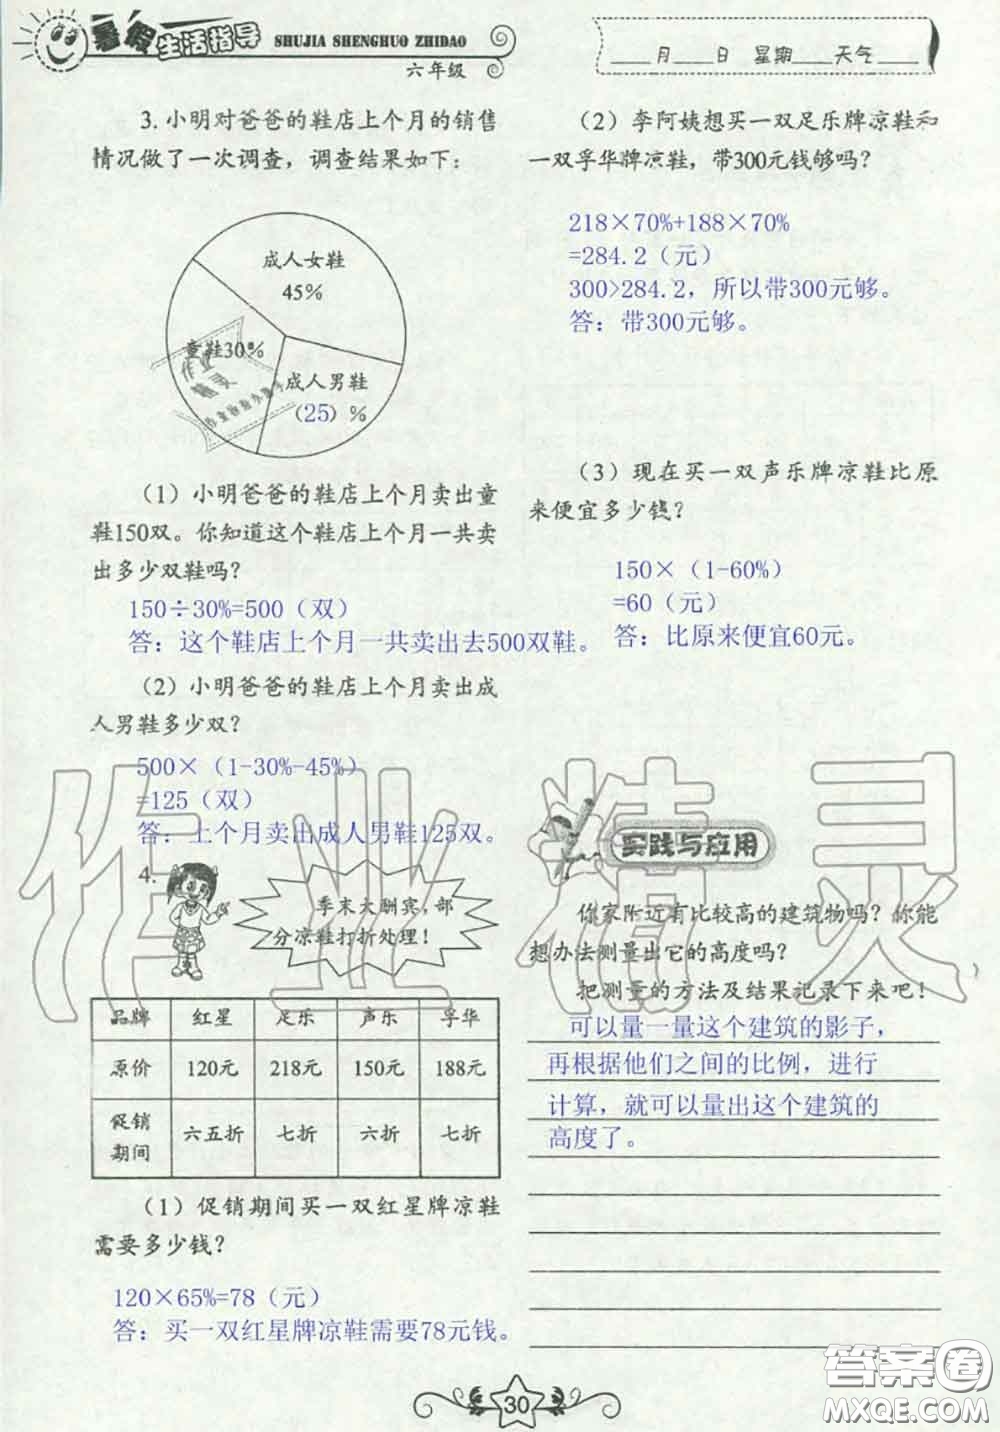 暑假生活指导
SHUJIA SHENGHUO ZHIDAO
六年级
____月____日 星期____天气____
3. 小明对爸爸的鞋店上个月的销售
情况做了一次调查，调查结果如下：
成人女鞋
45%
童鞋30%
成人男鞋
（25）%
（1）小明爸爸的鞋店上个月卖出童
鞋150双。你知道这个鞋店上个月一共卖
出多少双鞋吗？
150÷30%=500（双）
答：这个鞋店上个月一共卖出去500双鞋。
（2）小明爸爸的鞋店上个月卖出成
人男鞋多少双？
500×（1-30%-45%）
=125（双）
答：上个月卖出成人男鞋125双。
4.
季末大酬宾，部
分凉鞋打折处理！
品牌 红星 足乐 声乐 孚华
原价 120元 218元 150元 188元
促销
期间 六五折 七折 六折 七折
（1）促销期间买一双红星牌凉鞋
需要多少钱？
120×65%=78（元）
答：买一双红星牌凉鞋需要78元钱。
（2）李阿姨想买一双足乐牌凉鞋和
一双孚华牌凉鞋，带300元钱够吗？
218×70%+188×70%
=284.2（元）
300>284.2，所以带300元够。
答：带300元够。
（3）现在买一双声乐牌凉鞋比原
来便宜多少钱？
150×（1-60%）
=60（元）
答：比原来便宜60元。
实践与应用
你家附近有比较高的建筑物吗？你能
想办法测量出它的高度吗？
把测量的方法及结果记录下来吧！
可以量一量这个建筑的影子，
再根据他们之间的比例，进行
计算，就可以量出这个建筑的
高度了。
30
作业精灵
答案圈
MXQE.COM